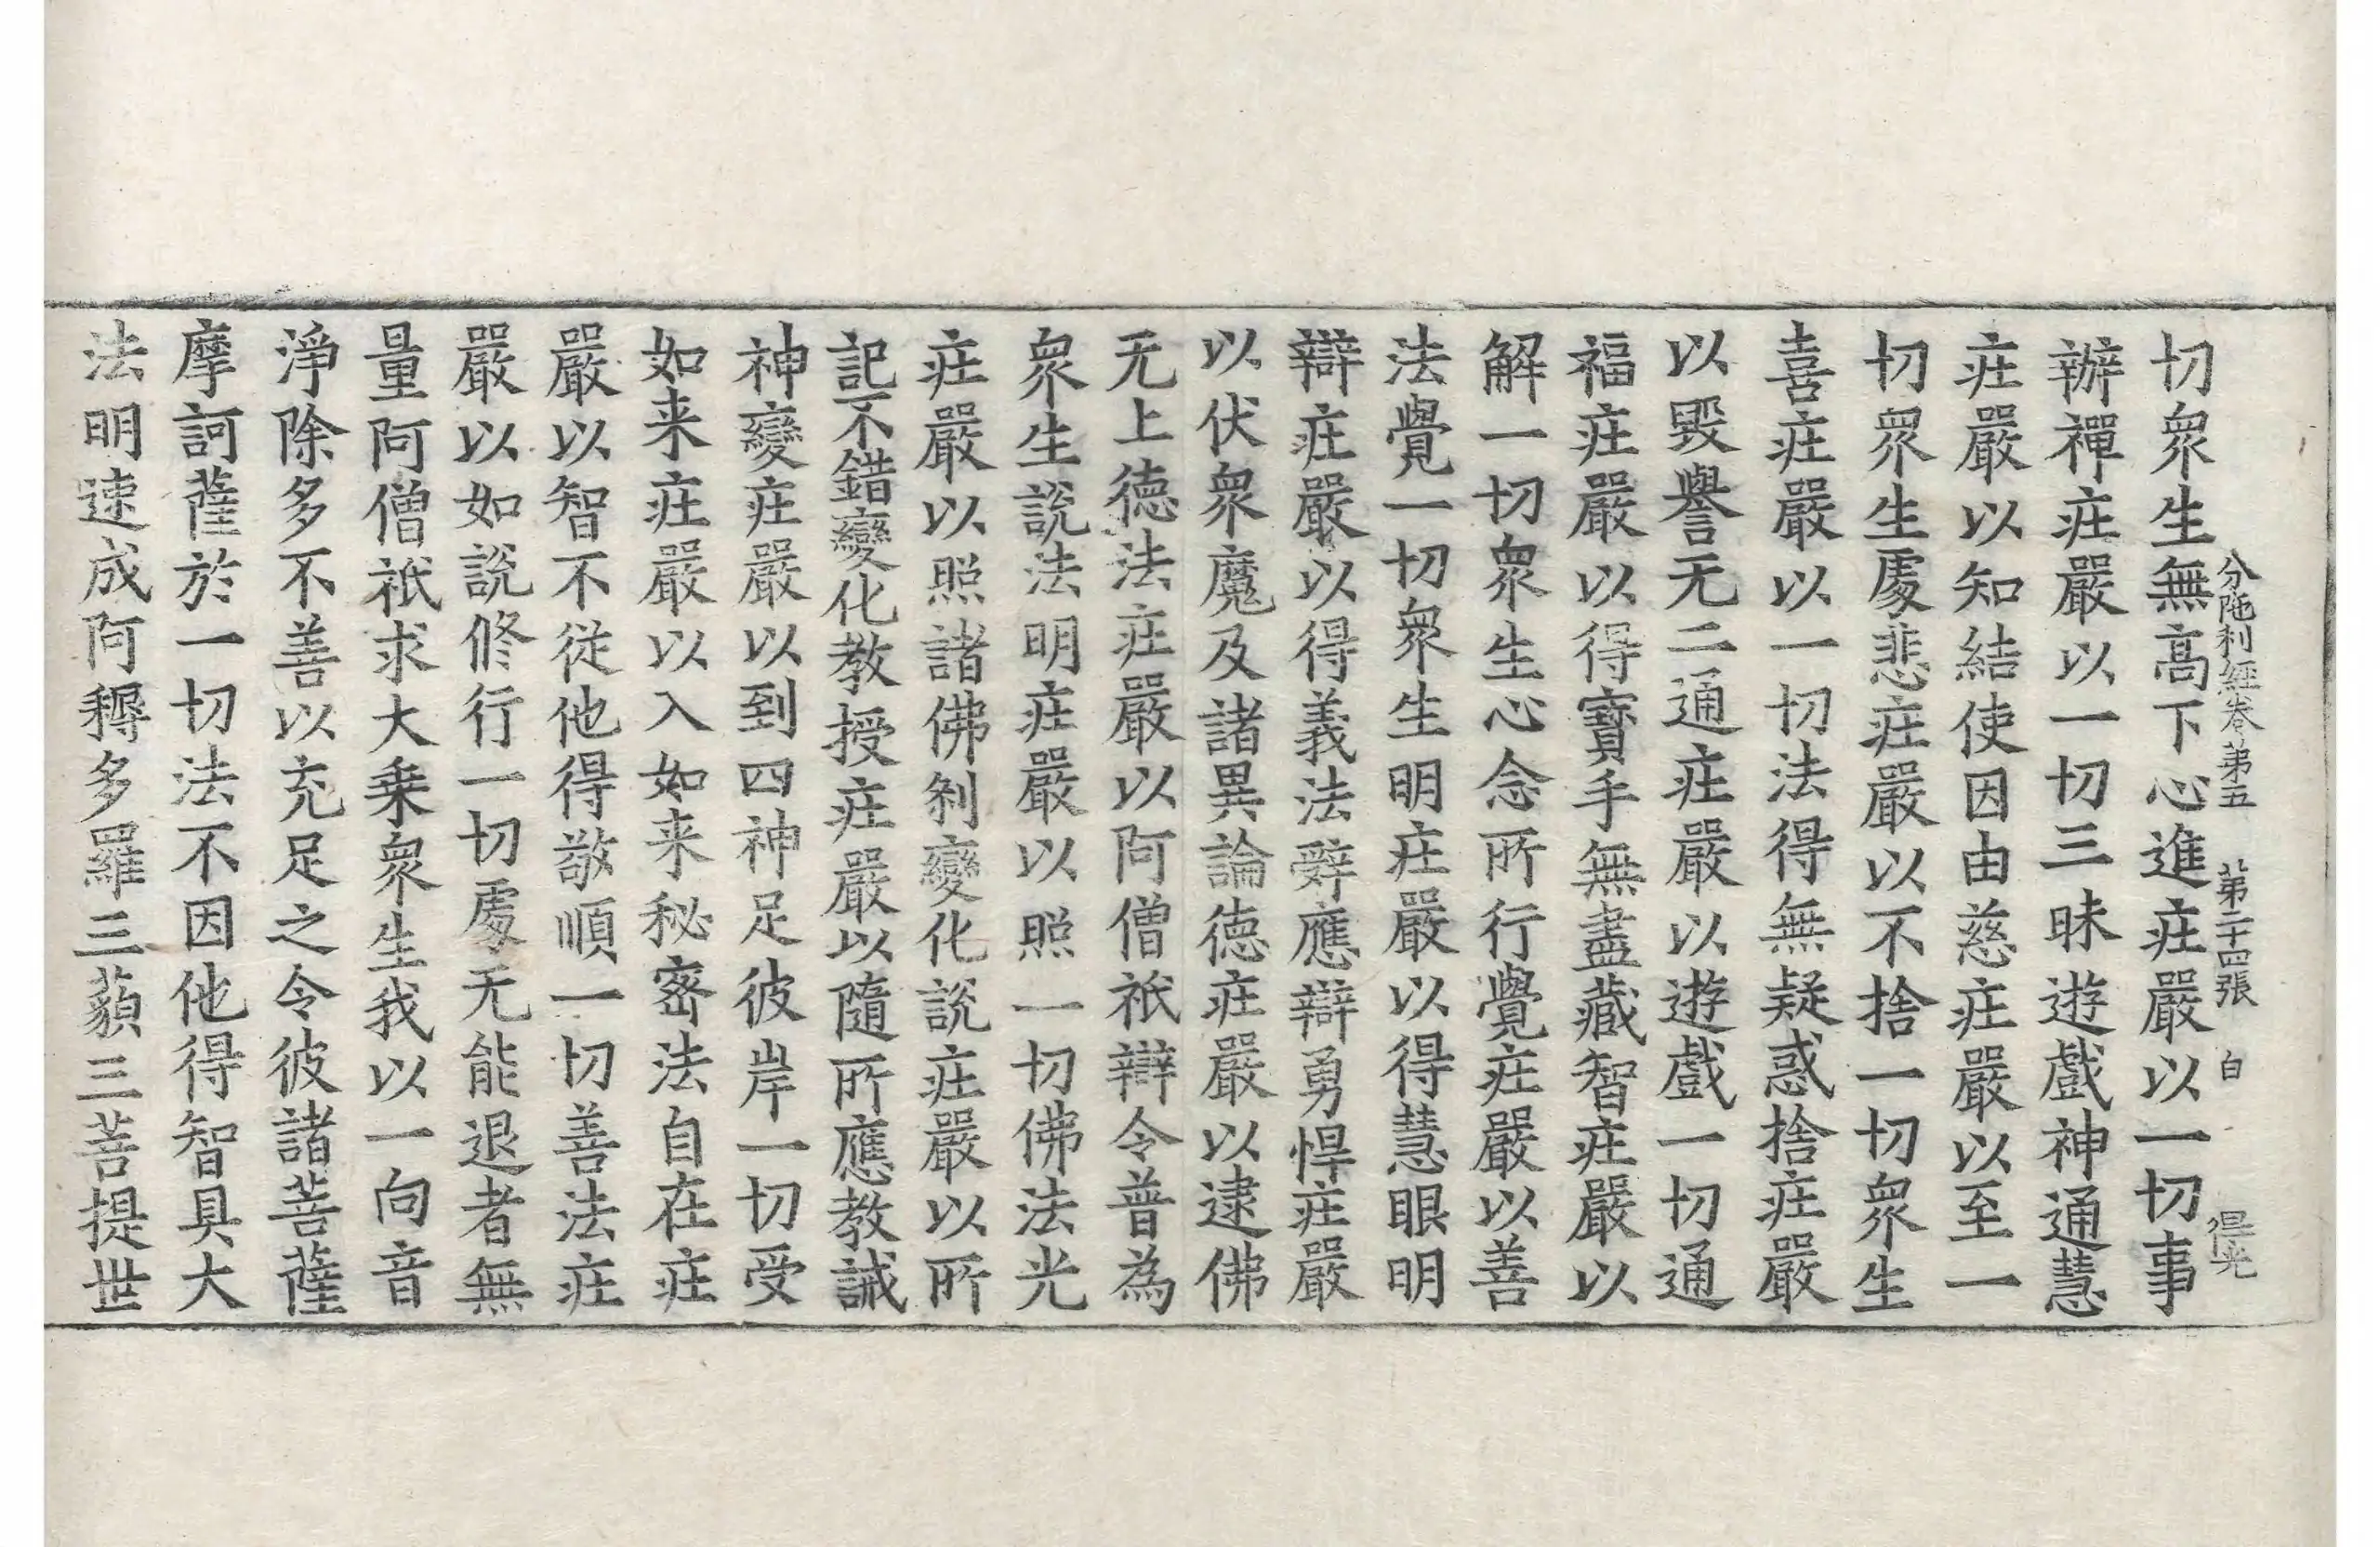 切衆生無高下心進庄嚴以一切事
分陁利經卷第五 第二十四張 白 得光
辦禪庄嚴以一切三昧遊戲神通慧
庄嚴以知結使因由慈庄嚴以至一
切衆生處悲庄嚴以不捨一切衆生
喜庄嚴以一切法得無疑惑捨庄嚴
以毀譽无二通庄嚴以遊戲一切通
福庄嚴以得寶手無盡藏智庄嚴以
解一切衆生心念所行覺庄嚴以善
法覺一切衆生明庄嚴以得慧眼明
辯庄嚴以得義法辤應辯勇悍庄嚴
以伏衆魔及諸異論德庄嚴以逮佛
无上德法庄嚴以阿僧祇辯令普為
衆生說法明庄嚴以照一切佛法光
庄嚴以照諸佛刹變化說庄嚴以所
記不錯變化教授庄嚴以隨所應教誡
神變庄嚴以到四神足彼岸一切受
如来庄嚴以入如来秘密法自在庄
嚴以智不從他得敬順一切善法庄
嚴以如說修行一切處无能退者無
量阿僧祇求大乗衆生我以一向音
淨除多不善以充足之令彼諸菩薩
摩訶薩於一切法不因他得智具大
法明速成阿耨多羅三藐三菩提世